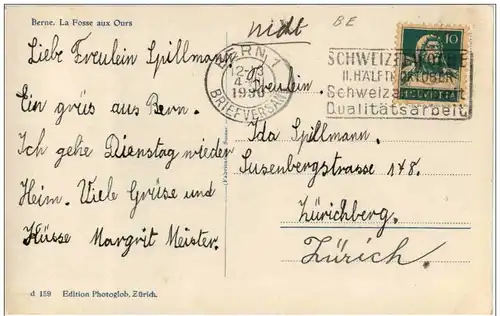 Berne. La Fosse aux Ours
nidt
BE
Liebe Freulein Spillmann.
Ein grüs aus Bern.
Ich gehe Dienstag wieder
Heim. Viele Grüse und
Küsse Margrit Meister.
d 159 Edition Photoglob, Zürich.
BERN 1
1930
BRIEFVERSAND
SCHWEIZERWOCHE
II. HÄLFTE OKTOBER
Schweizer
Qualitätsarbeit
10
HELVETIA
Freulein.
Ida Spillmann.
Susenbergstrasse 148.
Zürichberg.
Zürich.